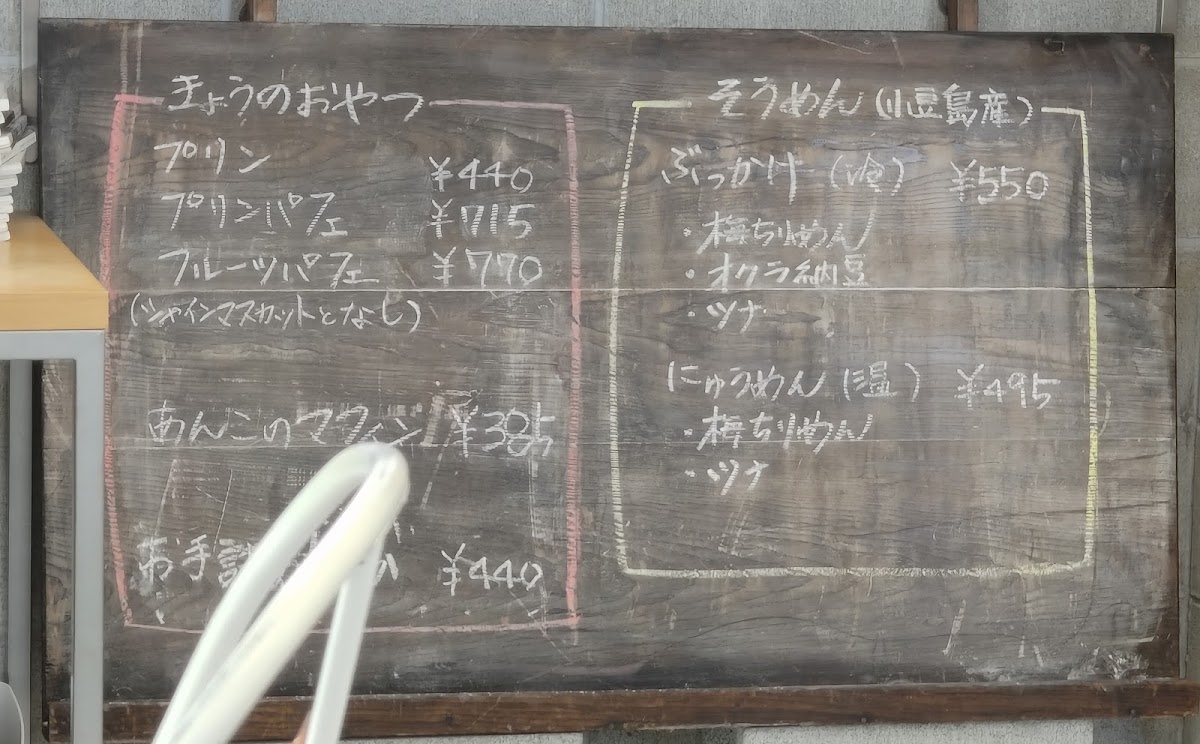 きょうのおやつ
プリン ¥440
プリンパフェ ¥715
フルーツパフェ ¥770
(シャインマスカットとなし)
あんこのマフィン ¥385
お手 ¥440
そうめん(小豆島産)
ぶっかけ(冷) ¥550
・梅ちりめん
・オクラ納豆
・ツナ
にゅうめん(温) ¥495
・梅ちりめん
・ツナ